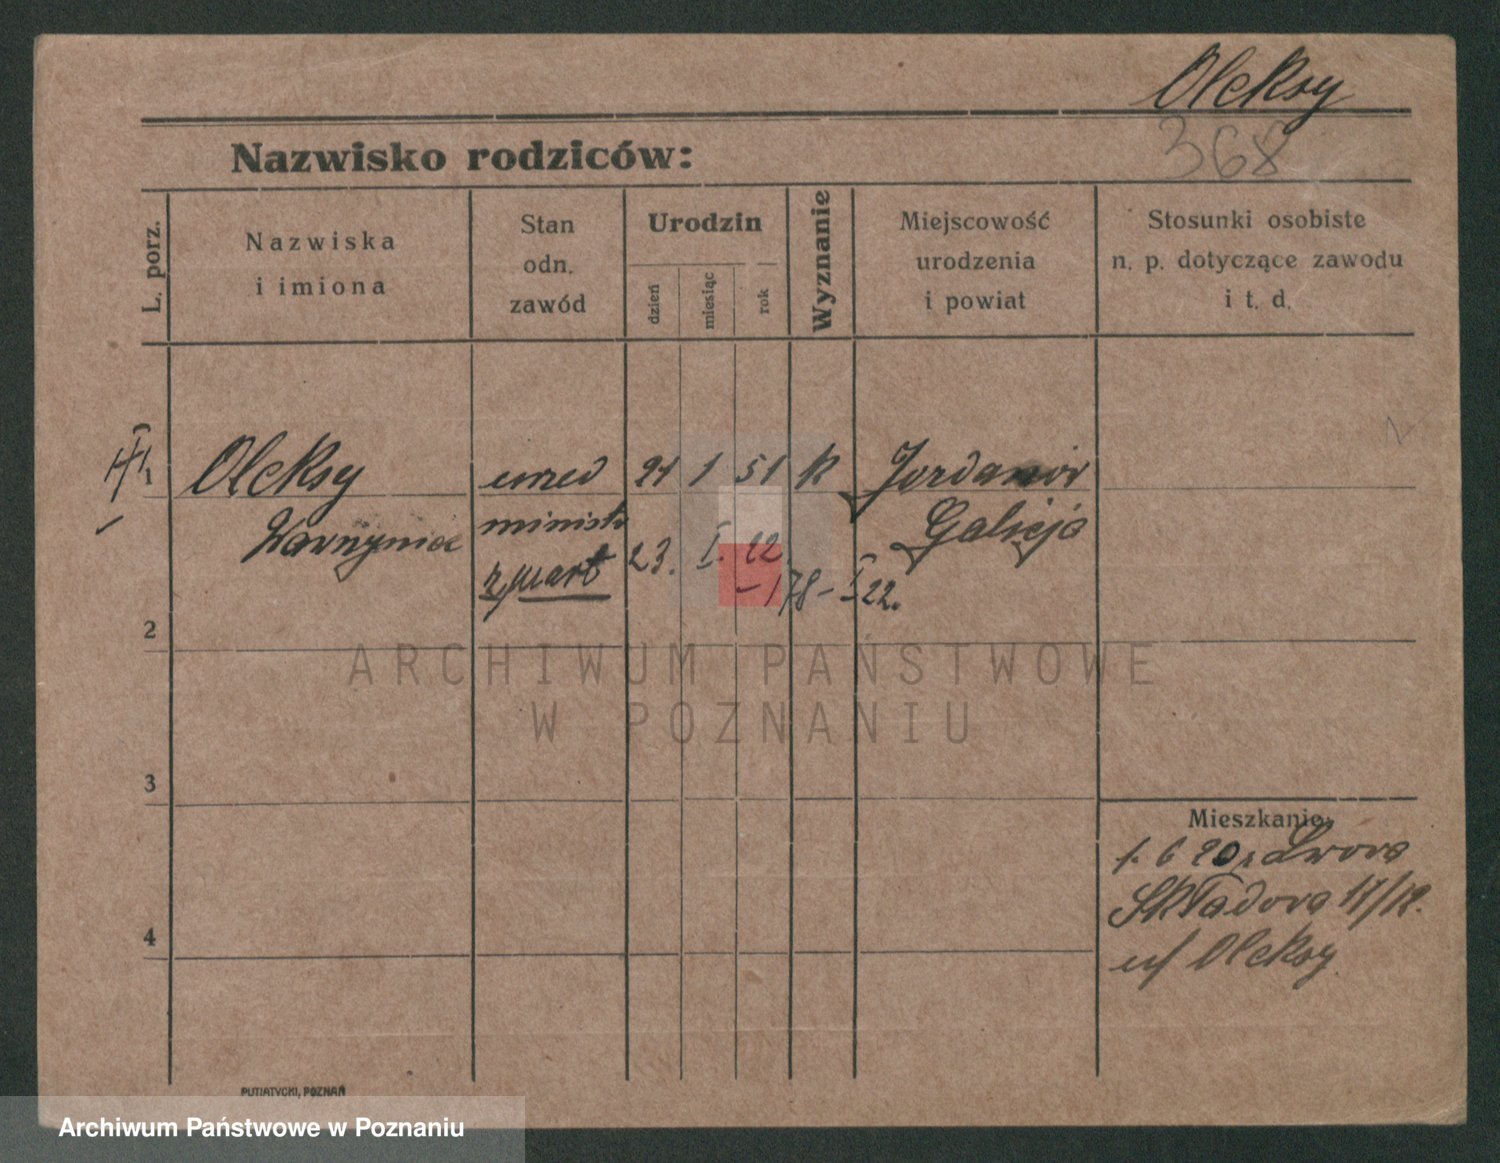 Oleksy
368
Nazwisko rodziców:
L. porz.
Nazwiska
i imiona
Stan
odn.
zawód
Urodzin
dzień
miesiąc
rok
Wyznanie
Miejscowość
urodzenia
i powiat
Stosunki osobiste
n. p. dotyczące zawodu
i t. d.
1 Oleksy 21 1 51 k Jordanów
Galicja
zmarł 23. I. 22.
– 178 – I 22.
2
ARCHIWUM PAŃSTWOWE
W POZNANIU
3
Mieszkanie:
1. 6 20 z Lwowa
Składowa 11/12.
4
u/ Oleksy
PUTIATYCKI, POZNAŃ
Archiwum Państwowe w Poznaniu